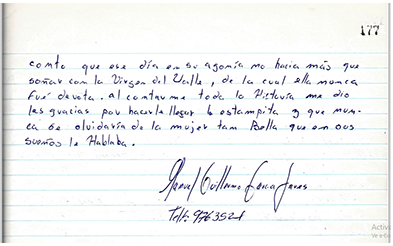 177
conto que ese día en su agonía no hacia más que
soñar con la Virgen del Valle, de la cual ella nunca
fué devota. al contarme toda la Historia me dio
las gracias por hacerle llegar la estampita y que nun-
ca se olvidaría de la mujer tan Bella que en sus
sueños le Hablaba.
Manuel Guillermo
Telf. 9763521
Activa